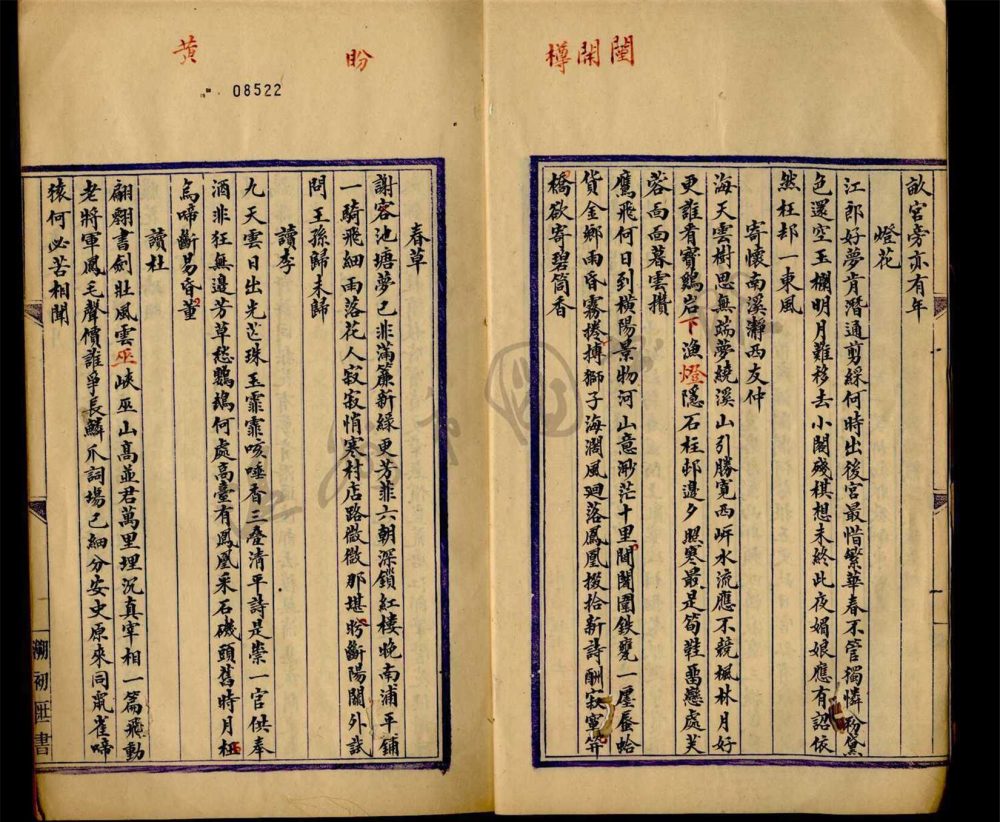 閩開樽
畝宮旁亦有年
燈花
江郎好夢肯潛通剪綵何時出後宮最惜繁華春不管獨憐粉黛
色還空玉欄明月難移去小閣殘棋想未終此夜媚娘應有詔依
然枉却一東風
寄懷南溪瀞西友仲
海天雲樹思無端夢繞溪山引勝寬西㟁水流應不競楓林月好
更誰看寶鷄岩下漁燈隱石柱邨邊夕照寒最是筍鞋畱戀處芙
蓉面面暮雲攢
鷹飛何日到橫陽景物河山意渺茫十里闉闍圍鉄甕一壥蜃蛤
貨金鄉雨昏霧捲摶獅子海濶風廻落鳳凰掇拾新詩酬寂寞筭
橋欲寄碧筒香
盼
黄
08522
春草
謝客池塘夢已非滿簾新綠更芳菲六朝深鎖紅樓晚南浦平鋪
一騎飛細雨落花人寂寂悄寒村店路微微那堪盻斷陽關外試
問王孫歸未歸
讀李
九天雲日出光芒珠玉霏霏咳唾香三疊清平詩是祟一官供奉
酒非狂無邊芳草愁鸚鵡何處高臺有鳳凰采石磯頭舊時月枉
烏啼斷易昏黃
讀杜
翩翩書劍壯風雲巫峽巫山高並君萬里埋沉真宰相一篇飛動
老將軍鳳毛聲價誰爭長鱗爪詞場已細分安史原來同鼠雀啼
猿何必苦相聞
一
溯初社書